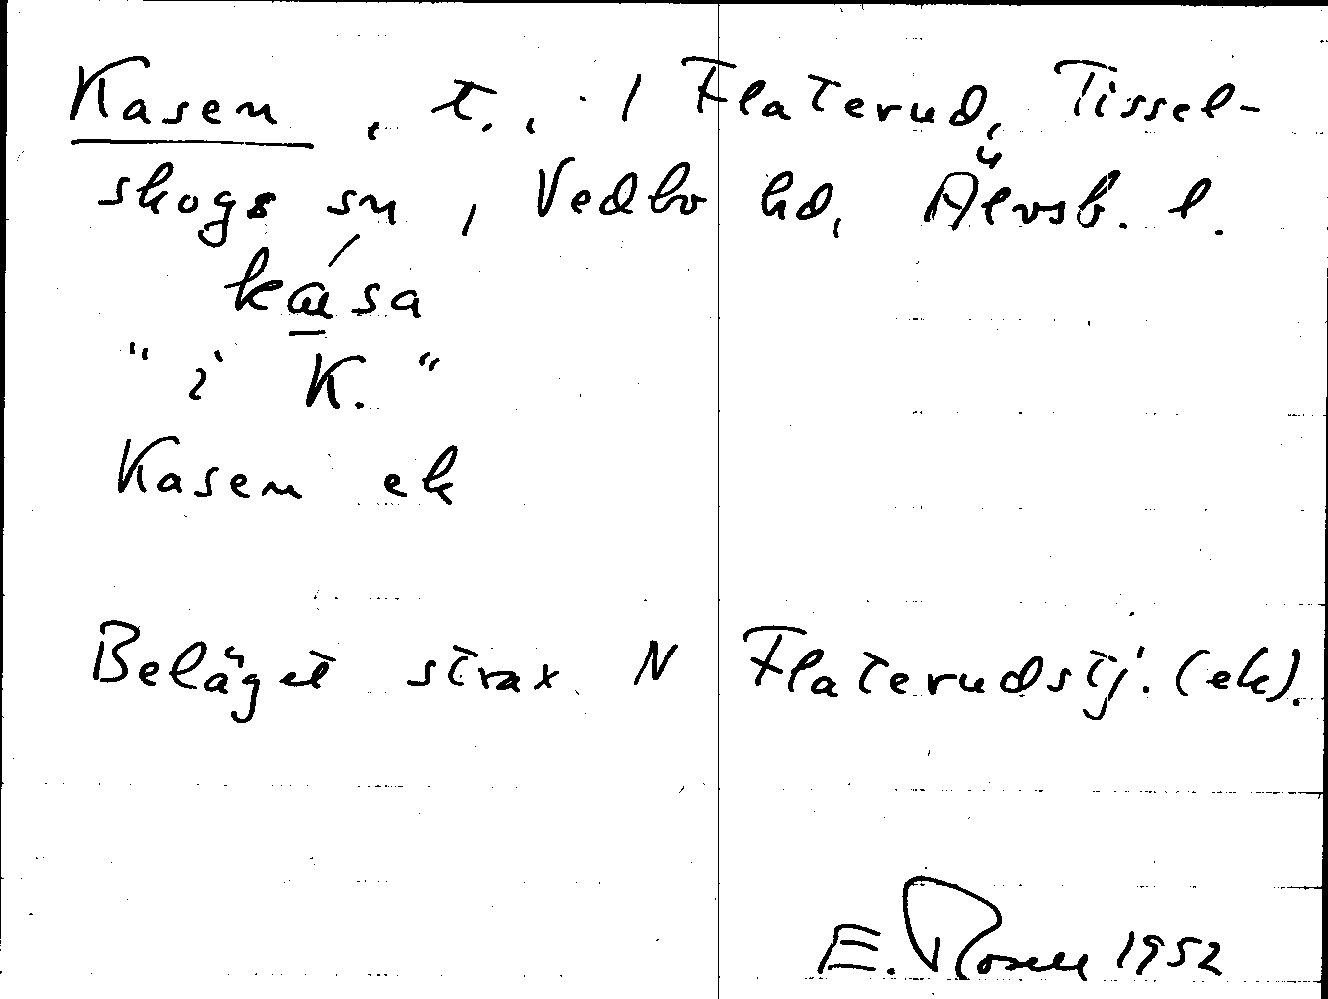 Kasen, t., 1 Flaterud, Tissel-
skogs sn, Vedbo hd, Älvsb. l.
kά̱sa
"i K."
Kasen ek
Beläget strax N Flaterudstj. (ek).
E. Rosell 1952